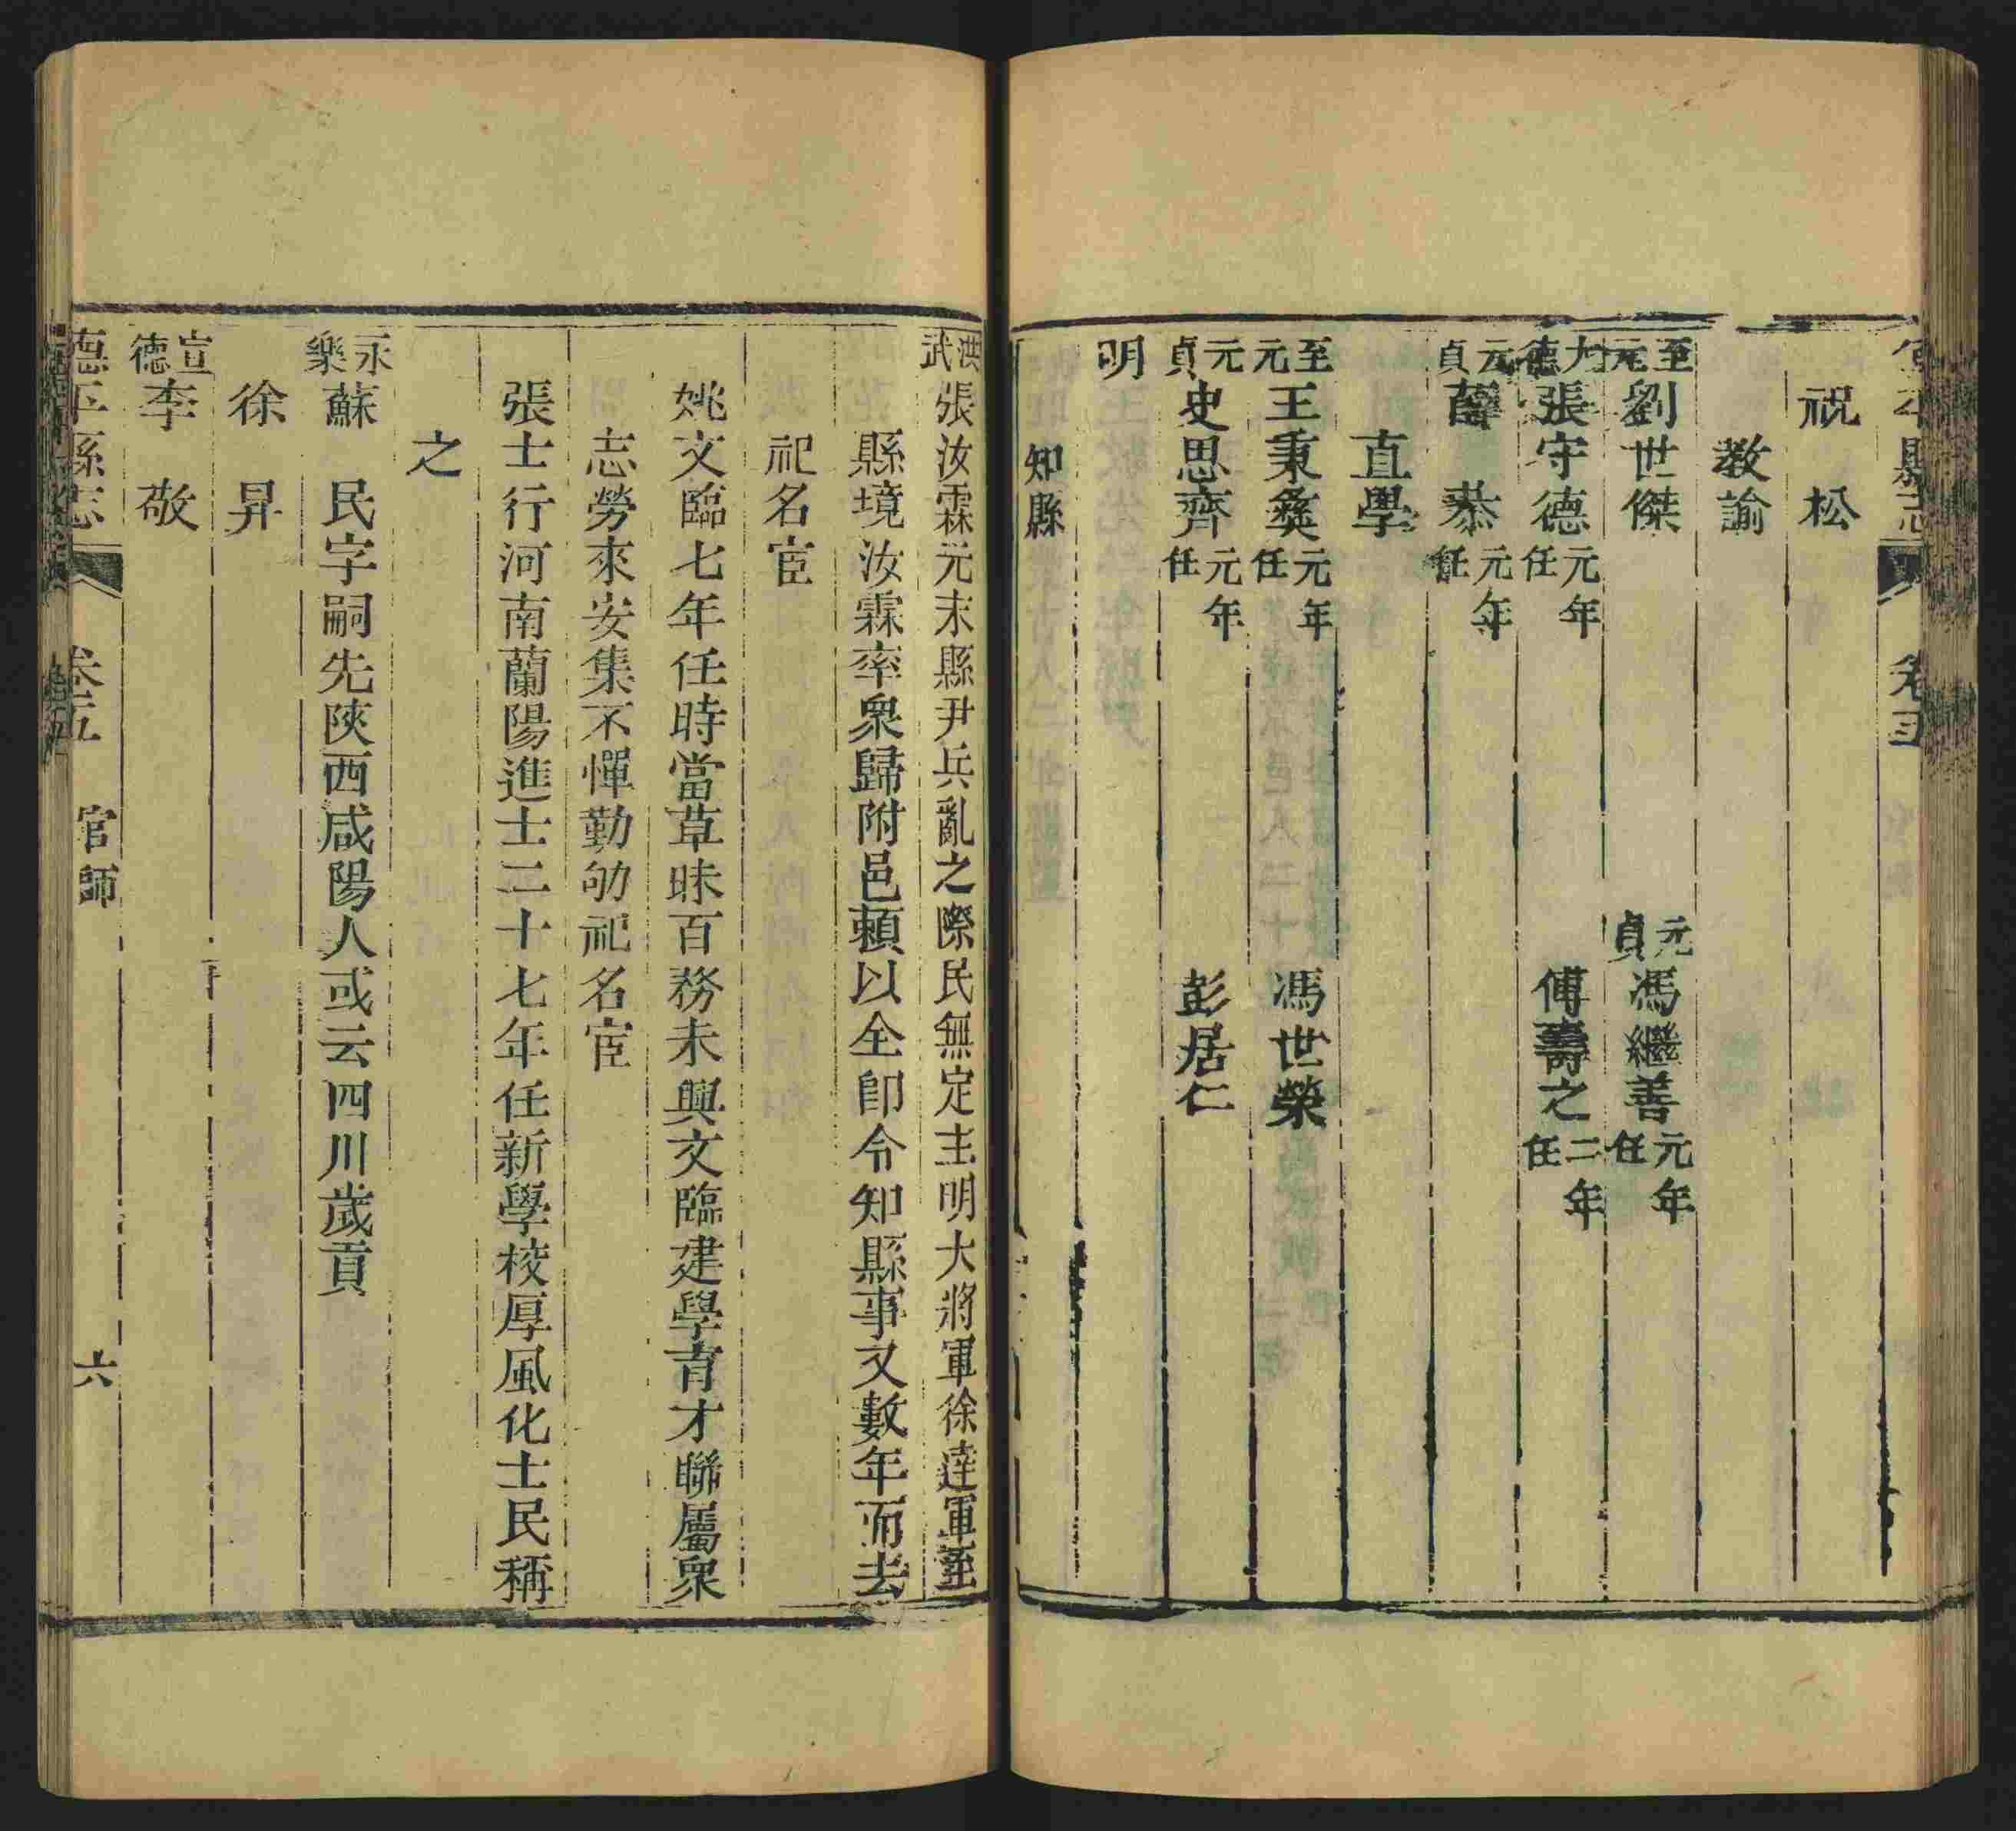 卷五
祝　松
教諭
至元 劉世傑　元貞 馮繼善 元年任
大德 張守德 元年任　傅壽之 二年任
元貞 薛　恭 元年任
直學
至元 王秉彝 元年任　馮世榮
元貞 史思齊 元年任　彭居仁
明
知縣
洪武 張汝霖元末縣尹兵亂之際民無定主明大將軍徐達軍至
縣境汝霖率衆歸附邑賴以全卽令知縣事又數年而去
祀名宦
姚文臨七年任時當草昧百務未興文臨建學育才聯屬衆
志勞來安集不憚勤劬祀名宦
張士行河南蘭陽進士二十七年任新學校厚風化士民稱
之
永樂 蘇　民字嗣先陝西咸陽人或云四川歲貢
徐　昇
宣德 李　敬
德平縣志　卷五　官師　六